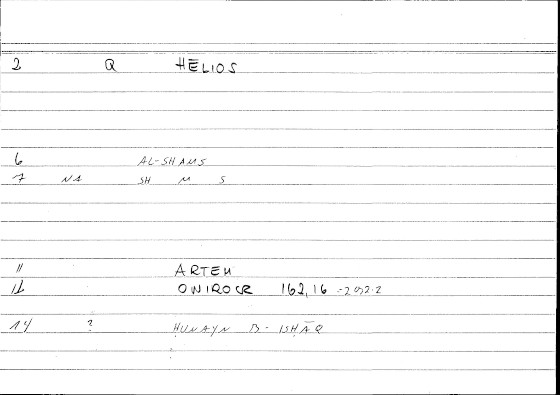 2 Q HĒLIOS
6 AL-SHAMS
7 NA SH M S
11 ARTEM
12 ONIROCR 162,16 -202.2
14 ? ḤUNAYN B- ISHĀQ